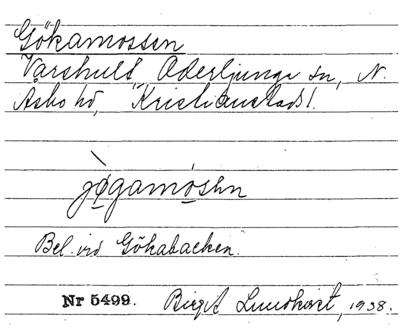 Gökamossen
Varshult, Oderljunga sn, N.
Åsbo hd, Kristianstads l.
jøgamosən
Bel. vid Gökabacken.
Nr 5499. Birgit Lundkvist, 1938.